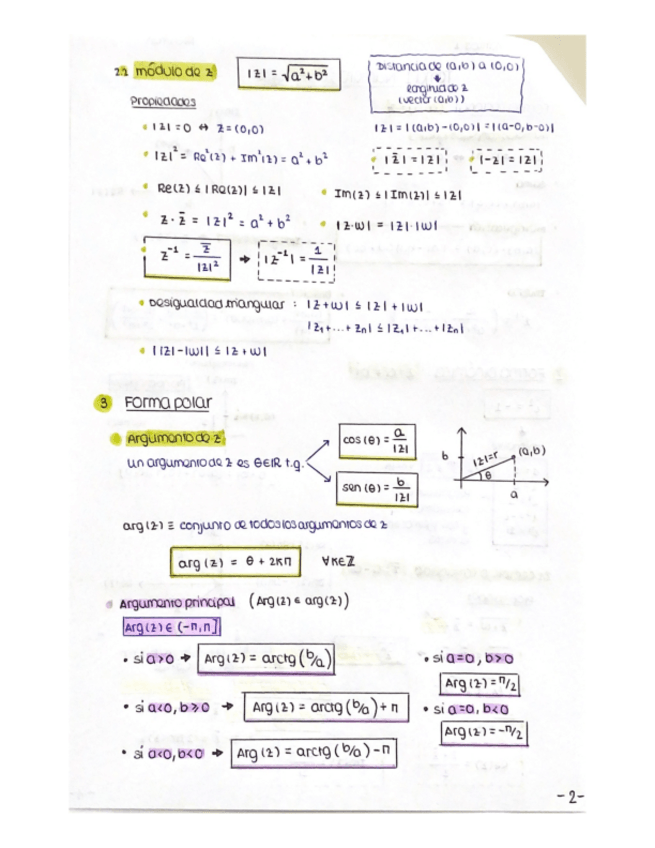 2.2 módulo de z
|z| = √a²+b²
Distancia de (a,b) a (0,0)
longitud de z
(vector (a,b))
Propiedades
|z| = 0 ↔ z = (0,0)
|z| = |(a,b) - (0,0)| = |(a-0, b-0)|
|z|² = Re²(z) + Im²(z) = a² + b²
|z̄| = |z|
|-z| = |z|
Re(z) ≤ |Re(z)| ≤ |z|
Im(z) ≤ |Im(z)| ≤ |z|
z · z̄ = |z|² = a² + b²
|z·w| = |z|·|w|
z⁻¹ = z̄/|z|² → |z⁻¹| = 1/|z|
Desigualdad triangular : |z+w| ≤ |z| + |w|
|z₁+...+zₙ| ≤ |z₁|+...+|zₙ|
||z|-|w|| ≤ |z+w|
3 Forma polar
Argumento de z
un argumento de z es θ∈ℝ t.q.
cos(θ) = a/|z|
sen(θ) = b/|z|
b
|z|=r
(a,b)
θ
a
arg(z) ≡ conjunto de todos los argumentos de z
arg(z) = θ + 2kπ ∀k∈ℤ
Argumento principal (Arg(z) ∈ arg(z))
Arg(z) ∈ (-π, π]
• si a>0 → Arg(z) = arctg(b/a)
• si a=0, b>0
Arg(z) = π/2
• si a<0, b≥0 → Arg(z) = arctg(b/a) + π
• si a=0, b<0
Arg(z) = -π/2
• si a<0, b<0 → Arg(z) = arctg(b/a) - π
-2-